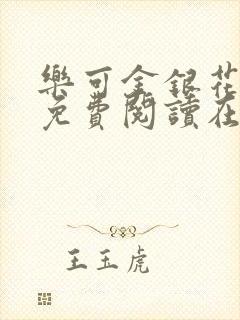 樂可金銀花
免費閱讀在
王玉虎